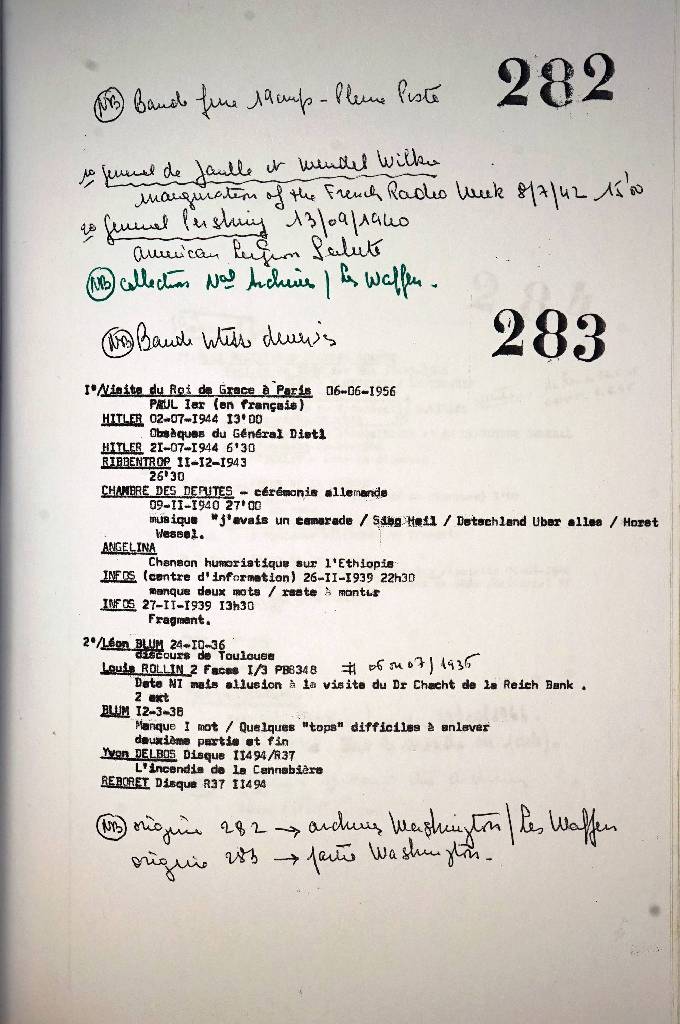 282
NB Bande fine 19 cm/s - Pleine Piste
1º General de Gaulle et Wendel Wilkie
inauguration of the French Radio Week 8/7/42 15'00
2º General Pershing 13/09/1940
American Legion Salute
NB collection Nal Archives / Les Waffen.
283
NB Bande vitesse
I°/Visite du Roi de Grece à Paris 06-06-1956
PAUL Ier (en français)
HITLER 02-07-1944 13'00
Obsèques du Général Dietl
HITLER 2I-07-1944 6'30
RIBBENTROP II-I2-1943
26'30
CHAMBRE DES DEPUTES - cérémonie allemande
09-II-I940 27'00
musique "j'avais un camarade / Sieg Heil / Detschland Uber alles / Horst
Wessel.
ANGELINA
Chanson humoristique sur l'Ethiopie
INFOS (centre d'information) 26-II-I939 22h30
manque deux mots / reste à monter
INFOS 27-II-I939 I3h30
Fragment.
2°/Léon BLUM 24-IO-36
discours de Toulouse
Louis ROLLIN 2 Faces I/3 PB8348 # 06 ou 07/1936
Date NI mais allusion à la visite du Dr Chacht de la Reich Bank .
2 ext
BLUM I2-3-38
Manque I mot / Quelques "tops" difficiles à enlever
deuxième partie et fin
Yvon DELBOS Disque II494/R37
L'incendie de la Cannebière
REBORET Disque R37 II494
NB origine 282 → archives Washington / Les Waffen
origine 283 → partie Washington.